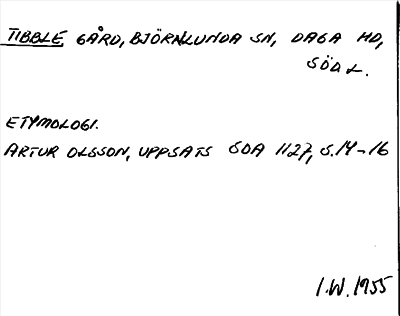 TIBBLE, GÅRD, BJÖRNLUNDA SN, DAGA HD,
SÖDL.
ETYMOLOGI.
ARTUR OLSSON, UPPSATS SOA 1127, S.14-16
I.W. 1955